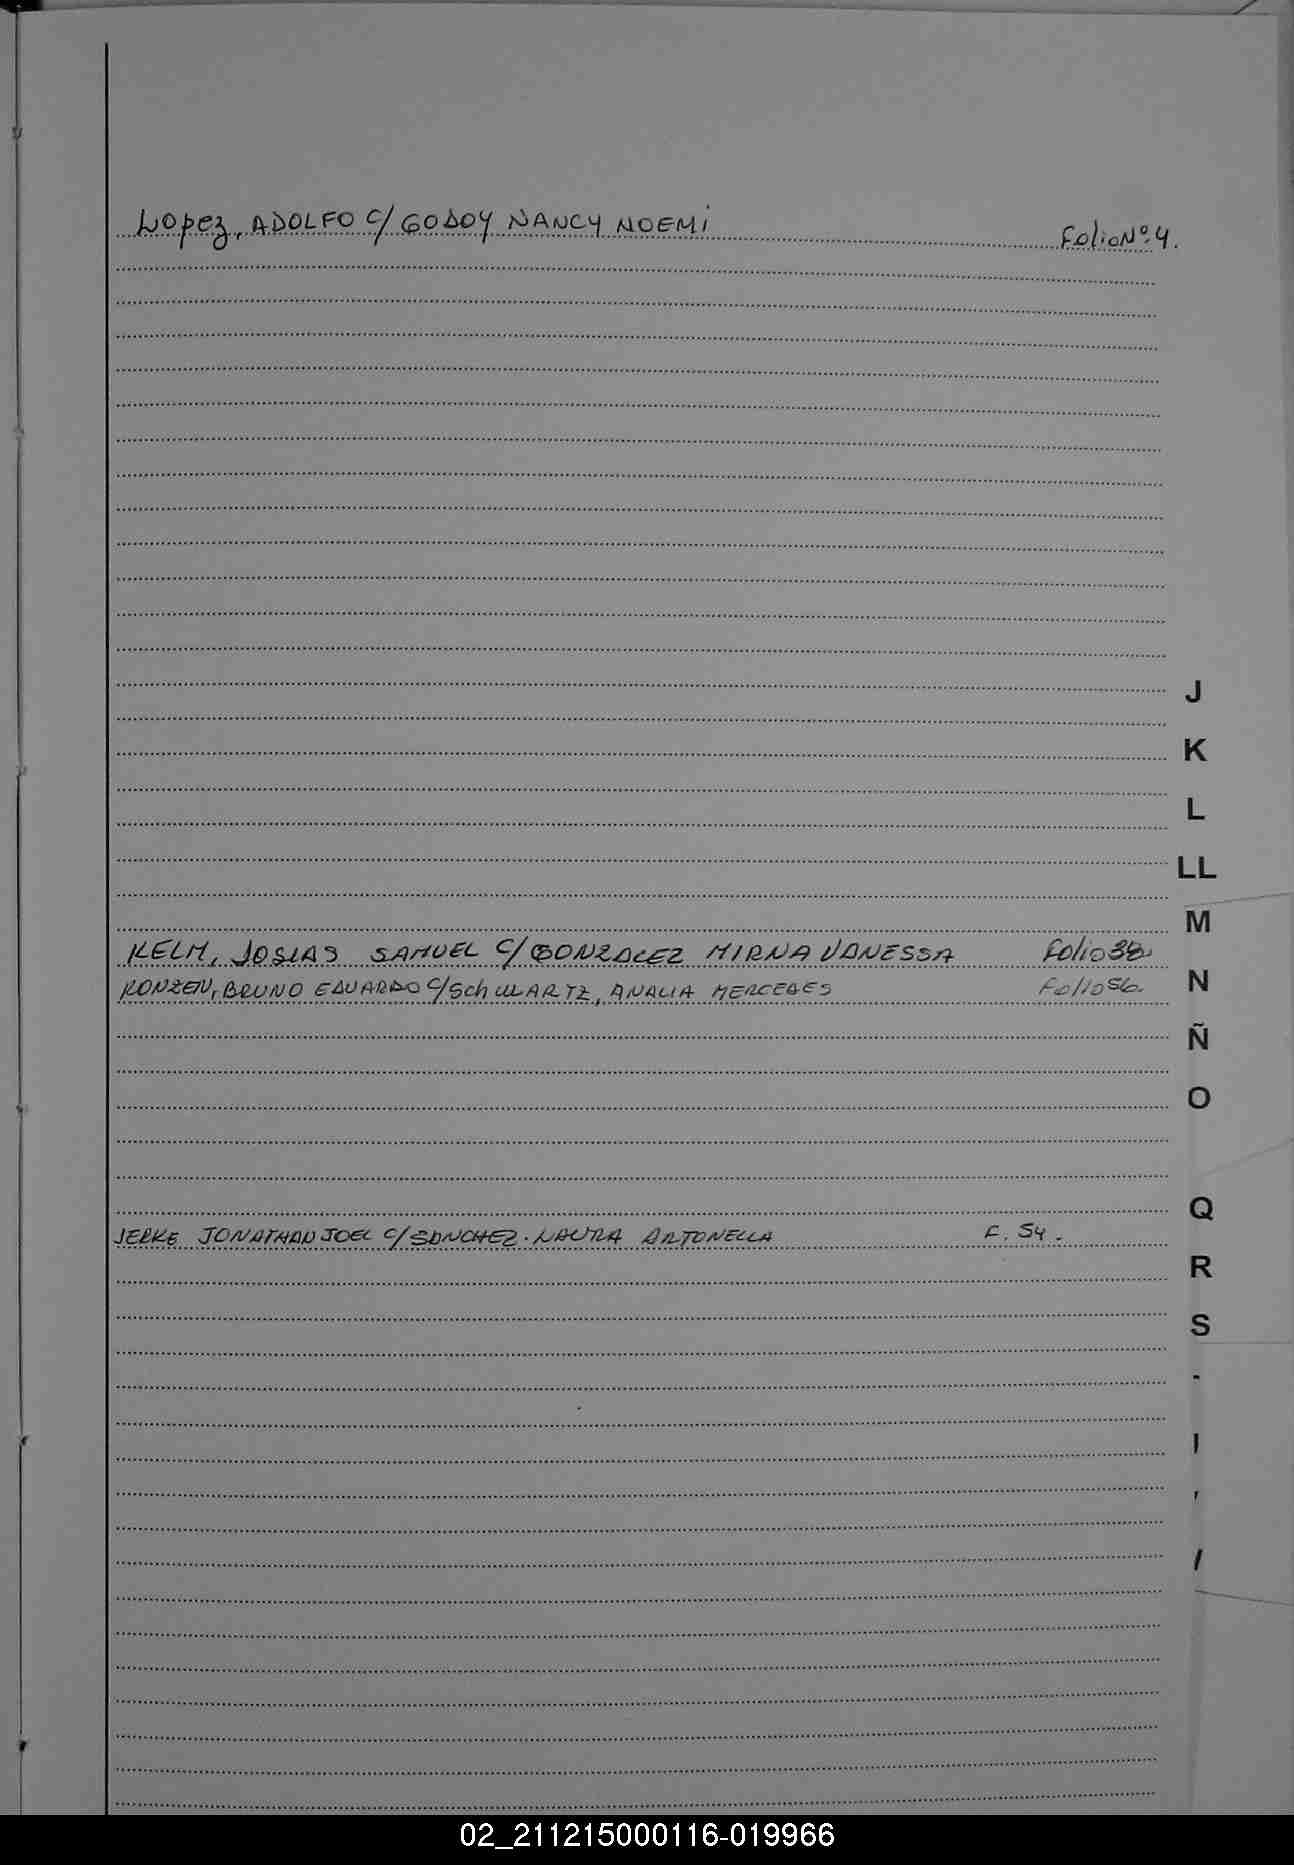 Lopez, ADOLFO C/ GODOY NANCY NOEMI Folio Nº 4.
J
K
L
LL
M
KELM, JOSIAS SAMUEL C/ GONZALEZ MIRNA VANESSA Folio
N
RONZEN, BRUNO EDUARDO C/ SCHWARTZ, ANALIA MERCEDES Folio 56.
Ñ
O
Q
JERKE JONATHAN JOEL C/ SANCHEZ. LAURA ANTONELLA F. 54.
R
S
02_211215000116-019966